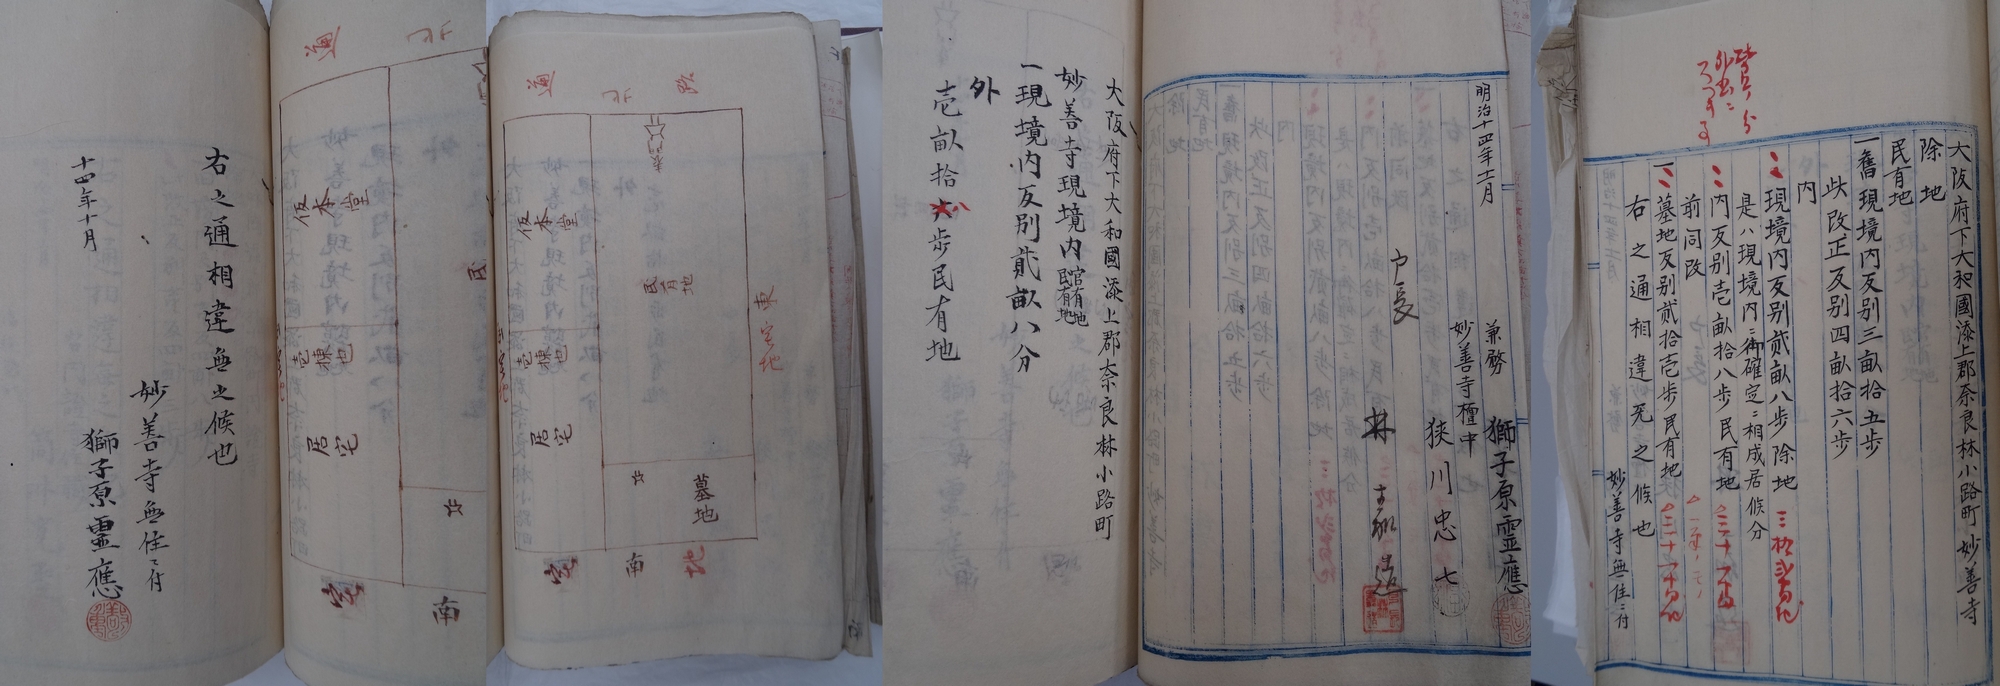 大阪府下大和國添上郡奈良林小路町 妙善寺
除地
民有地
一舊現境内反別三畝拾五歩
此改正反別四畝拾六歩
内
現境内反別貮畝八歩 除地
是ハ現境内ニ御確定ニ相成居候分
内反別壱畝拾八歩民有地
前同改
墓地反別貮拾壱歩民有地
右之通相違旡之候也
妙善寺無住ニ付
明治十四年十一月
兼務 獅子原霊應
妙善寺檀中
狹川忠七
戸長
林
大阪府下大和國添上郡奈良林小路町
妙善寺現境内官有地民有地
一現境内反別貮畝八分
外
壱畝拾八歩民有地
通
北
路
仮本堂
民有地
壱棟
居宅
東宅地
墓地
南
宅
地
通
北
仮本堂
民
壱棟
居宅
宅
南
右之通相違無之候也
妙善寺無住ニ付
十四年十月
獅子原靈應